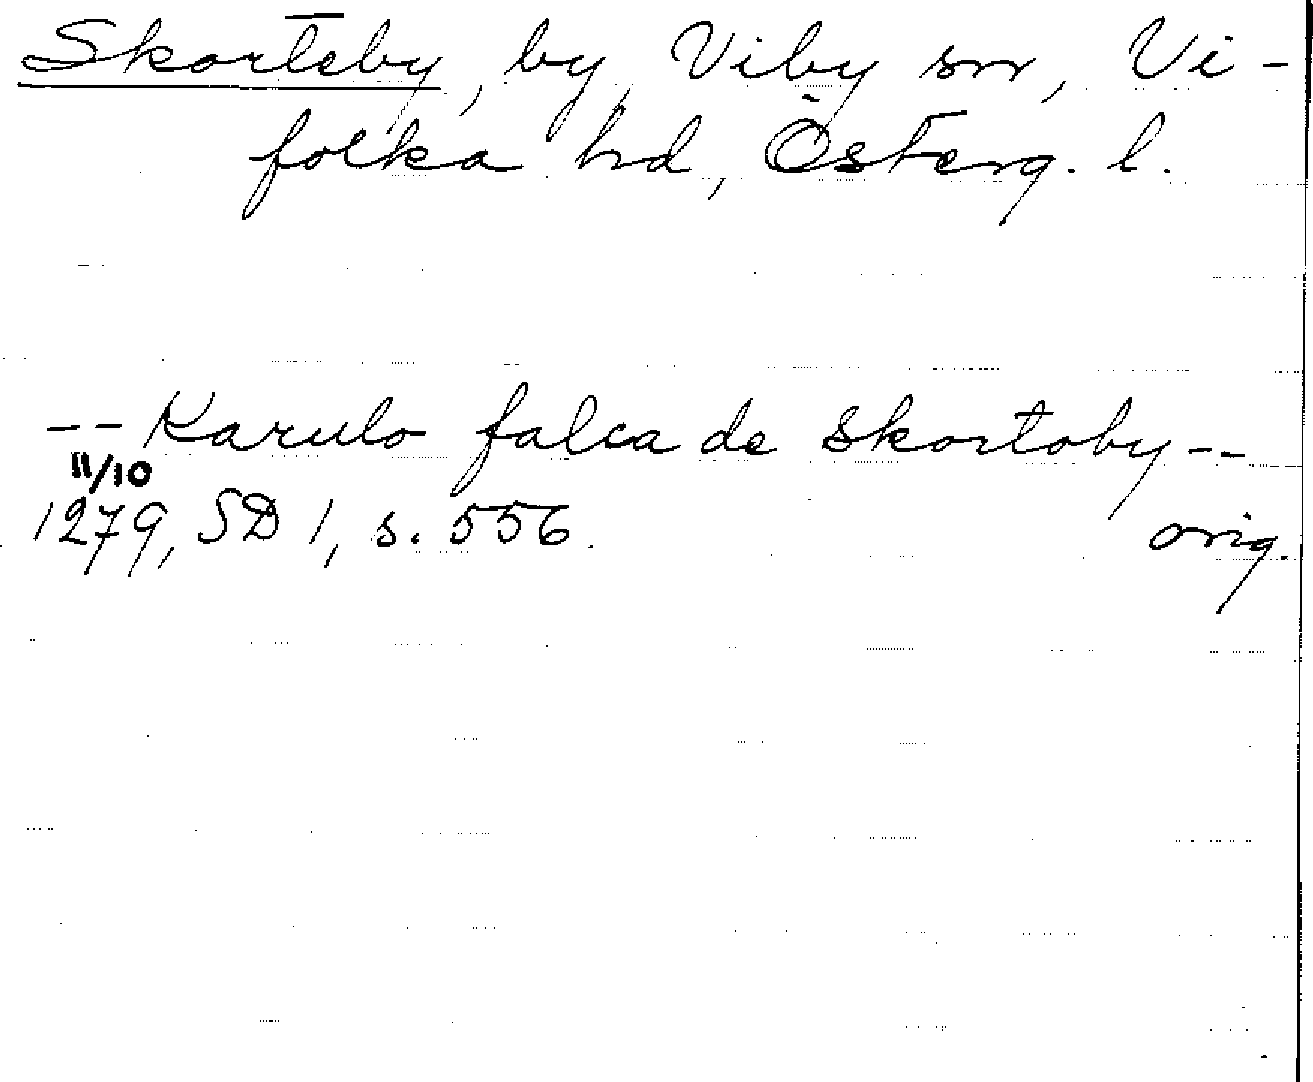 Skorteby, by, Viby sn, Vi-
folka hd, Österg. l.
-- Karulo falca de skortoby --
11/10
1279, SD 1, s. 556. orig.